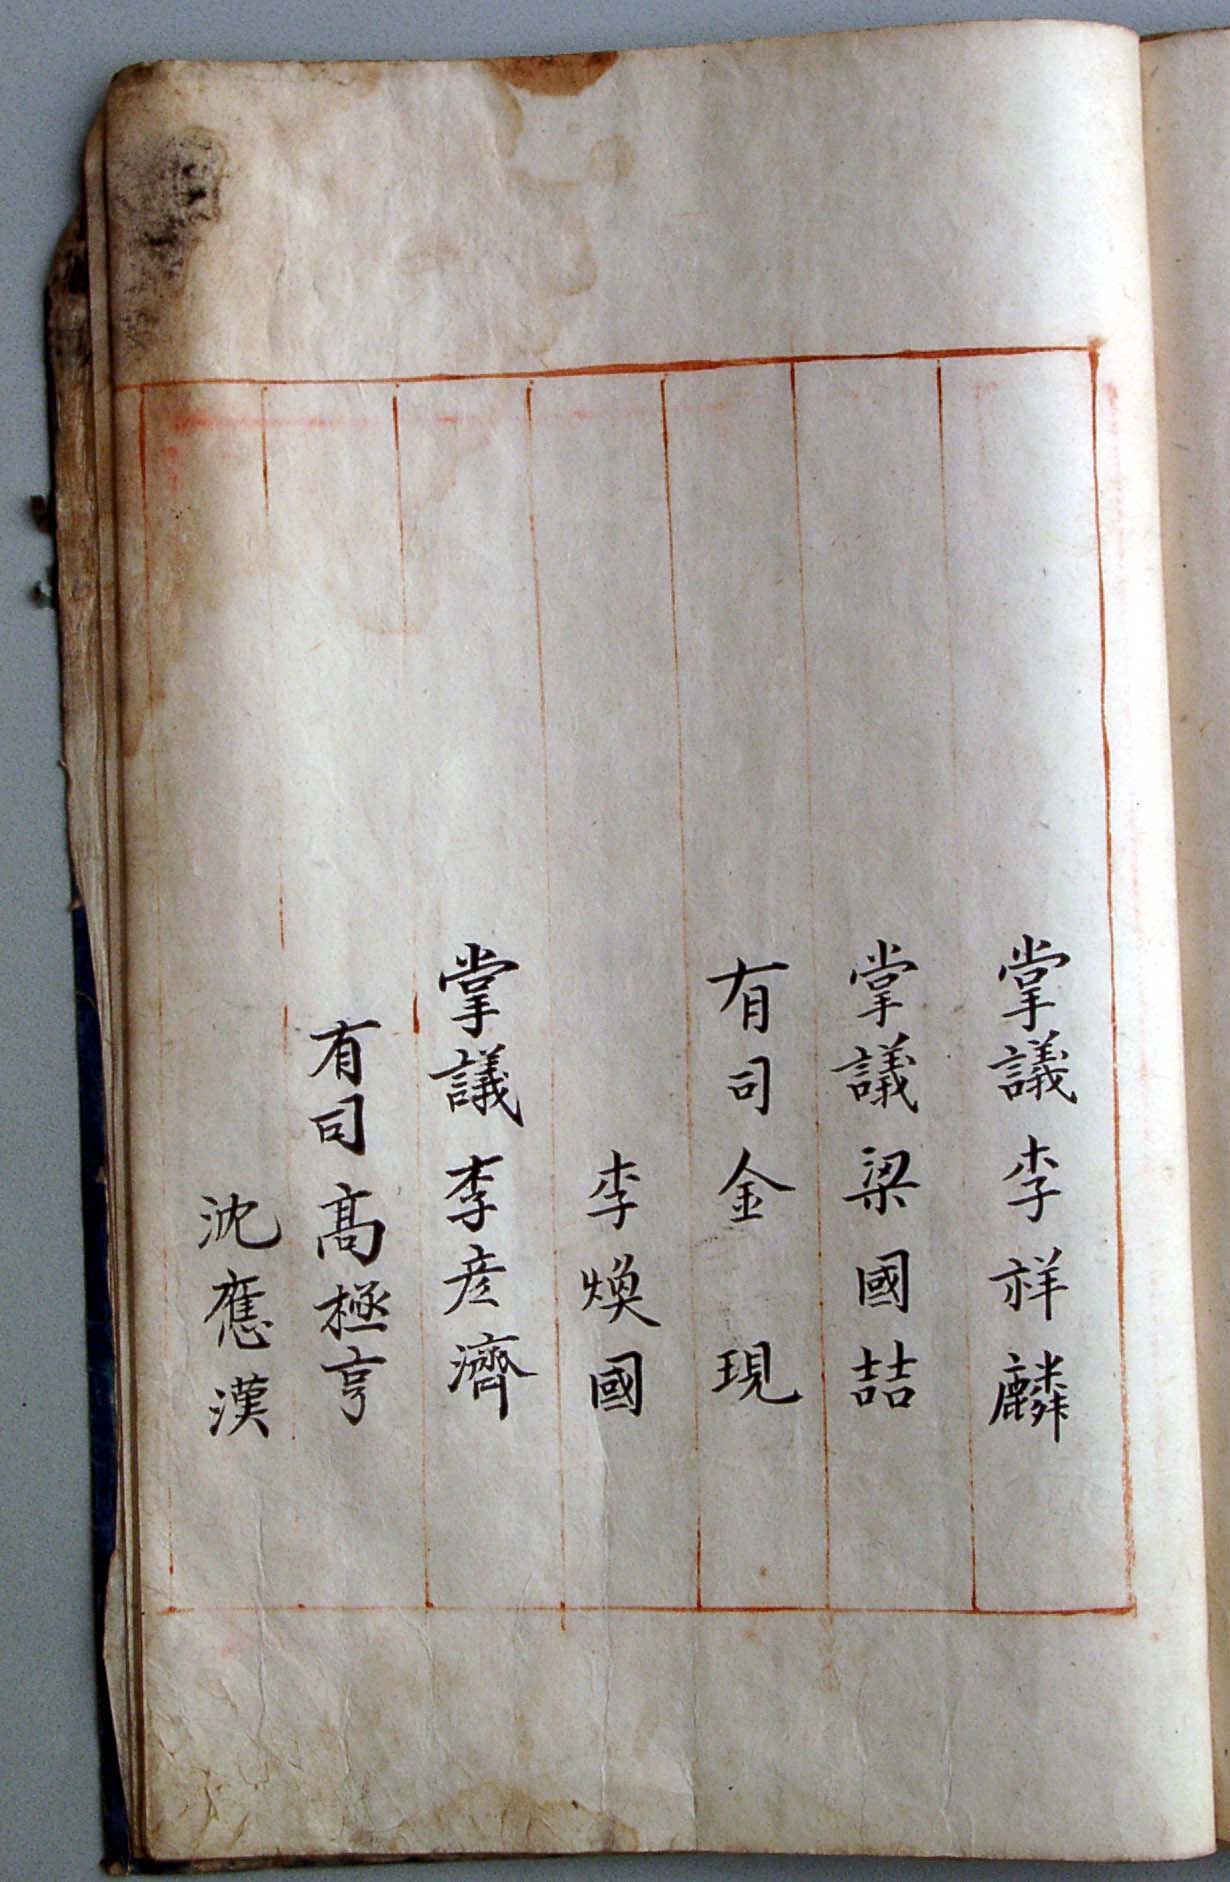 掌議李祥麟
掌議梁國喆
有司金現
李煥國
掌議李彦濟
有司高極亨
沈應漢